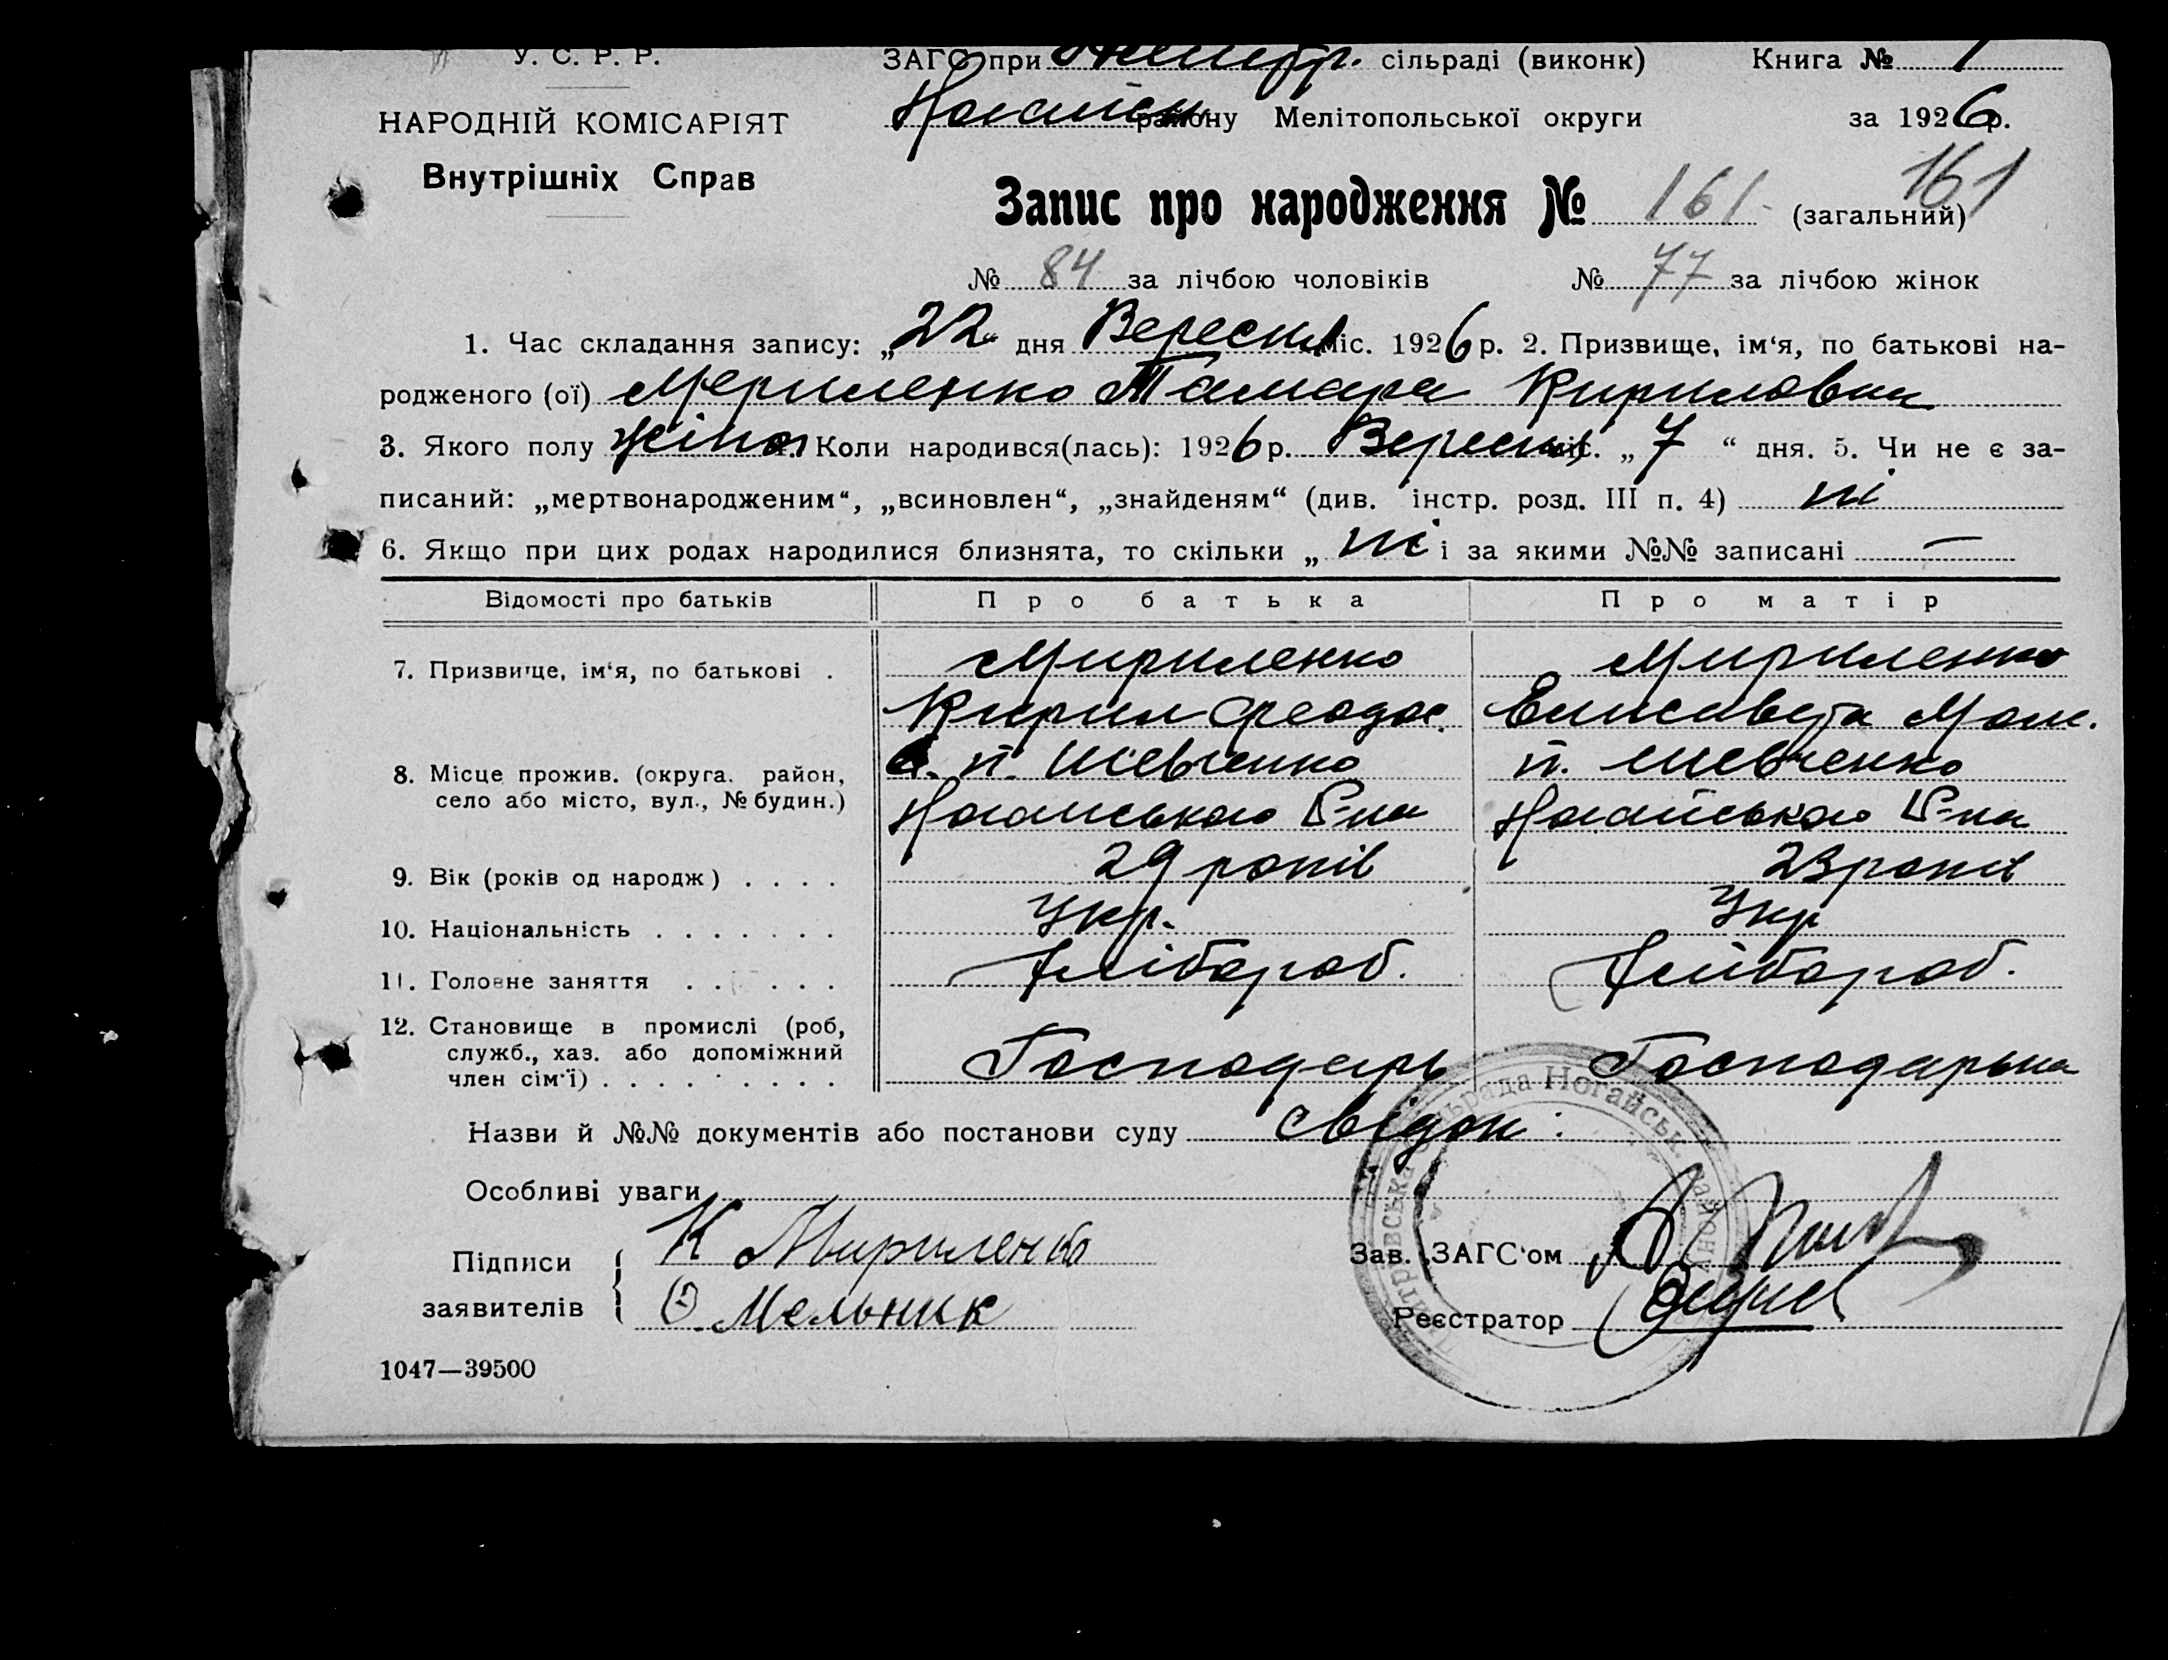 У. С. Р. Р.
НАРОДНІЙ КОМІСАРІЯТ
Внутрішніх Справ
ЗАГС при Дмитр. сільраді (виконк) Книга № 1
району Мелітопольської округи за 1926 р.
161
Запис про народження № 161 (загальний)
№ 84 за лічбою чоловіків № 77 за лічбою жінок
1. Час складання запису: „22“ дня Вересня міс. 1926 р. 2. Призвище, ім‘я, по батькові на-
родженого (ої) Мириленко Тамара Кириловна
3. Якого полу жіноч. Коли народився(лась): 1926 р. Вересня міс. „7“ дня. 5. Чи не є за-
писаний: „мертвонародженим“, „всиновлен“, „знайденям“ (див. інстр. розд. III п. 4) ні
6. Якщо при цих родах народилися близнята, то скільки „ ні і за якими №№ записані —
Відомості про батьків Про батька Про матір
7. Призвище, ім‘я, по батькові . Мириленко Мириленко
Кирил Феодос. Елисавета Мак.
8. Місце прожив. (округа, район, п. Шевченко п. Шевченко
село або місто, вул., № будин.) Ногайського Р-на Ногайського Р-на
9. Вік (років од народж) . . . . 29 років 23 років
10. Національність . . . . . . . Укр. Укр
11. Головне заняття . . . . . . Хлібороб. Хлібороб.
12. Становище в промислі (роб,
служб., хаз. або допоміжний
член сім‘ї) . . . . . . . . . Господарь Господарька
Назви й №№ документів або постанови суду свідок:
Особливі уваги
Підписи К Мириленко Зав. ЗАГС‘ом
заявителів О Мельник Реєстратор
Дмитрівська сільрада Ногайськ. району
1047—39500